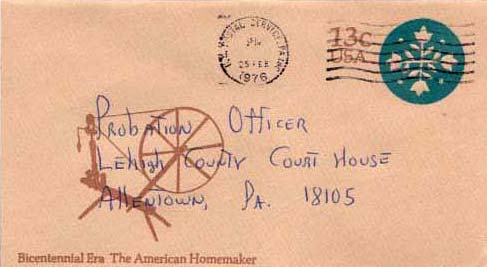 U.S. POSTAL SERVICE, PA
PM
25 FEB
1976
13c
USA
Probation Officer
Lehigh County Court House
Allentown, Pa. 18105
Bicentennial Era The American Homemaker